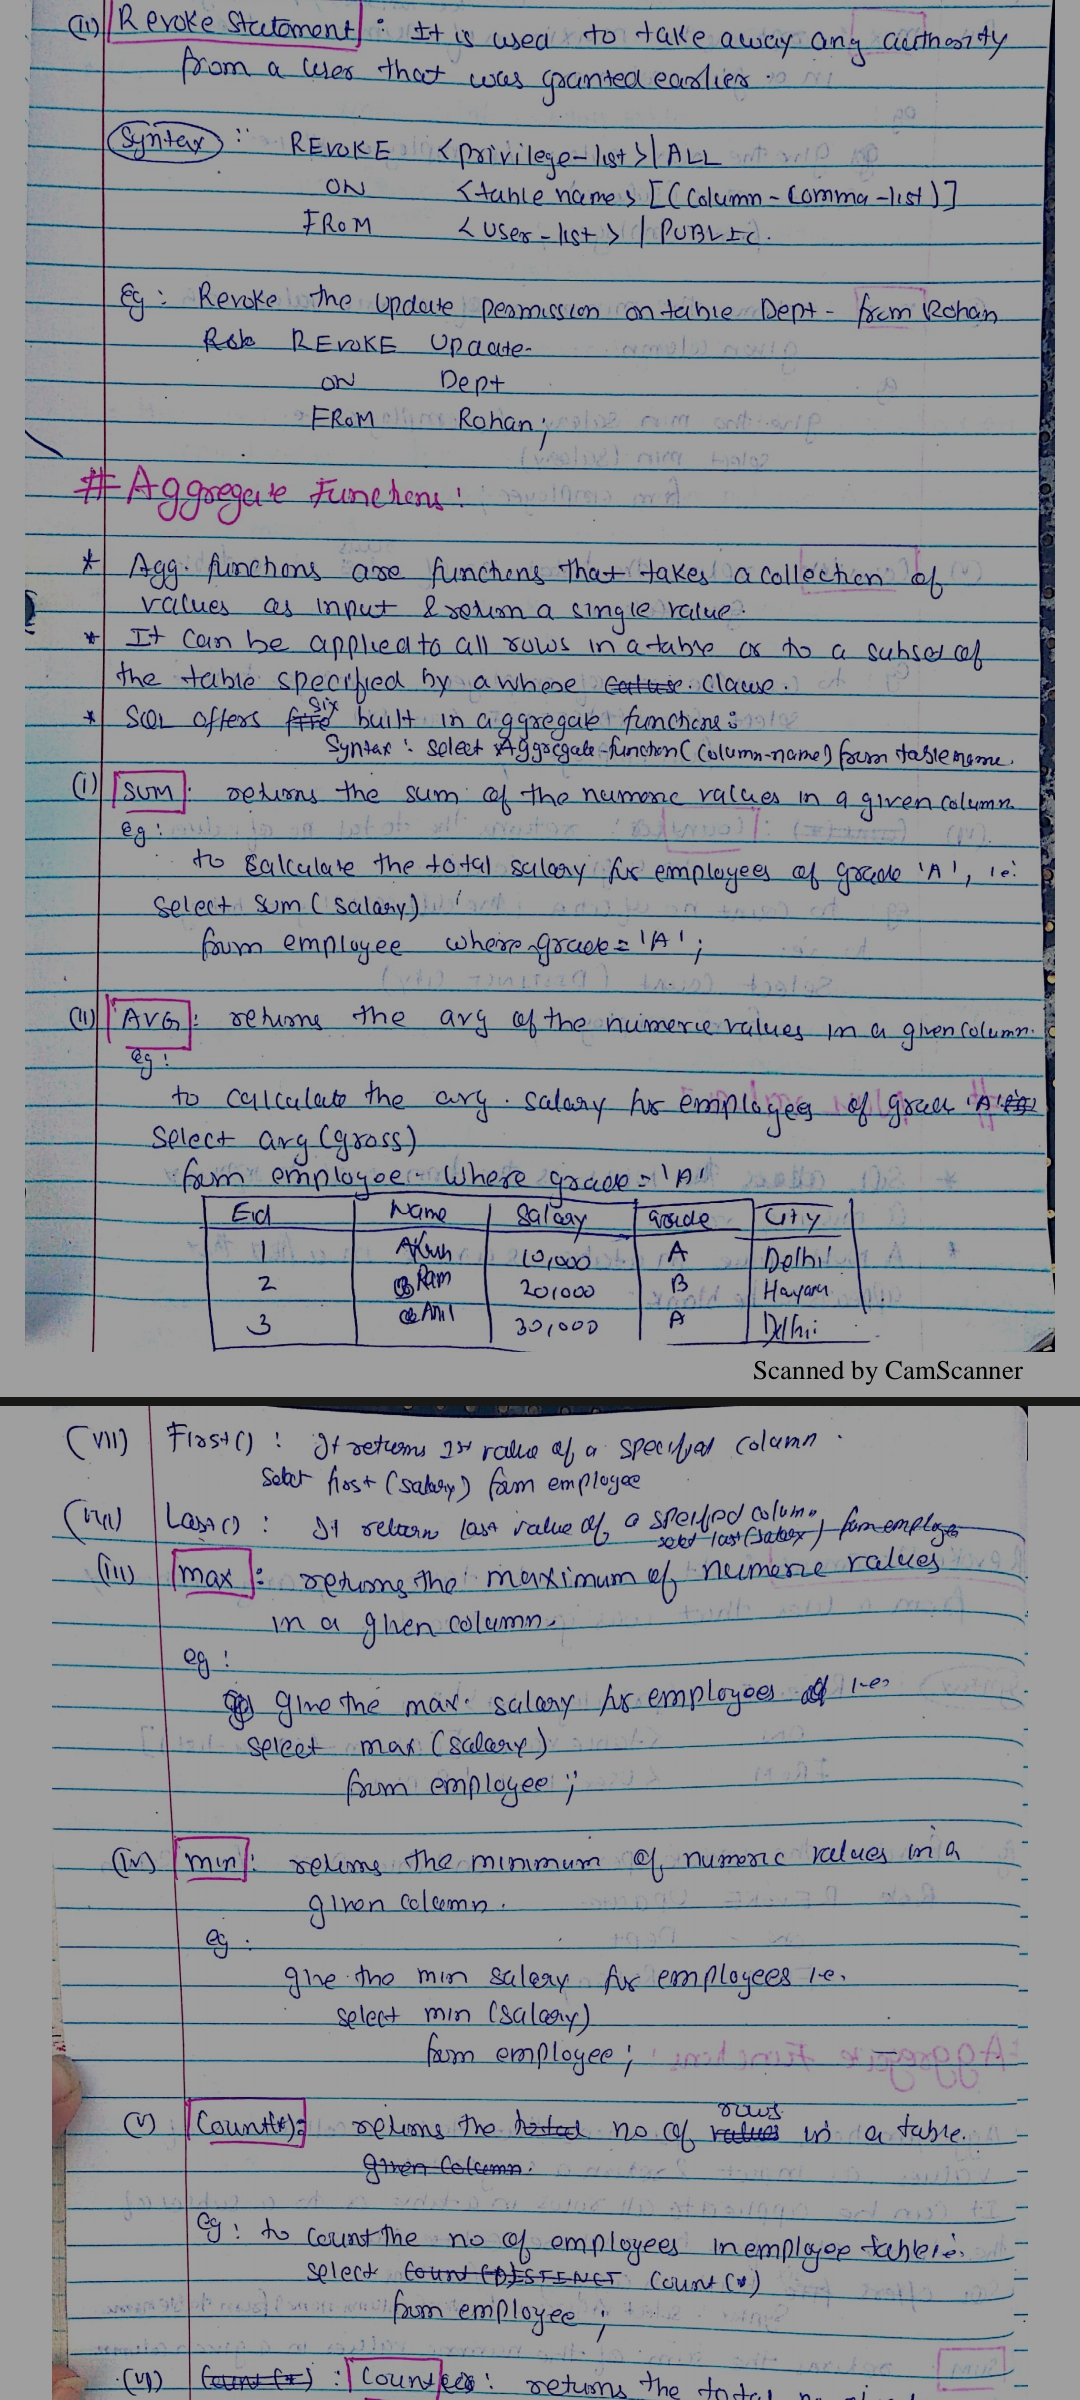 (ii) Revoke Statement : It is used to take away any authority
from a user that was granted earlier.
Syntax :: REVOKE <privilege-list>|ALL
ON <table name> [(Column-Comma-list)]
FROM <user-list> | PUBLIC.
Eg : Revoke the update permission on table Dept - from Rohan
REVOKE Update
ON Dept
FROM Rohan;
# Aggregate Functions:
* Agg. functions are functions that takes a collection of
values as input & return a single value.
* It can be applied to all rows in a table or to a subset of
the table specified by a where Clause.
* SQL offers six built in aggregate functions:
Syntax : select Aggregate-function(Column-name) from tablename.
(i) SUM : returns the sum of the numeric values in a given column.
eg :
to calculate the total salary for employees of grade 'A', i.e.
select sum (salary)
from employee where grade = 'A';
(ii) AVG : returns the avg of the numeric values in a given column.
eg :
to calculate the avg. salary for employees of grade 'A'
select avg (gross)
from employee where grade = 'A'
Eid Name Salary Grade City
1 10,000 A Delhi
2 Ram 20,000 B
3 Anil 30,000 A Delhi
Scanned by CamScanner
(vii) First() : It returns 1st value of a specified column.
select first (salary) from employee
(viii) Last() : It return last value of a specified column,
select last(salary) from employee
(iii) max : returns the maximum of numeric values
in a given column.
eg :
give the max. salary for employees i.e.
select max (salary)
from employee ;
(iv) min : returns the minimum of numeric values in a
given column.
eg :
give the min salary for employees i.e.
select min (salary)
from employee ;
(v) Count(*): returns the total no of rows in a table.
given column.
eg : to count the no of employees in employee table i.e.
select Count (DISTINCT Count (*)
from employee ;
(vi) Count (*) : Count : returns the total no